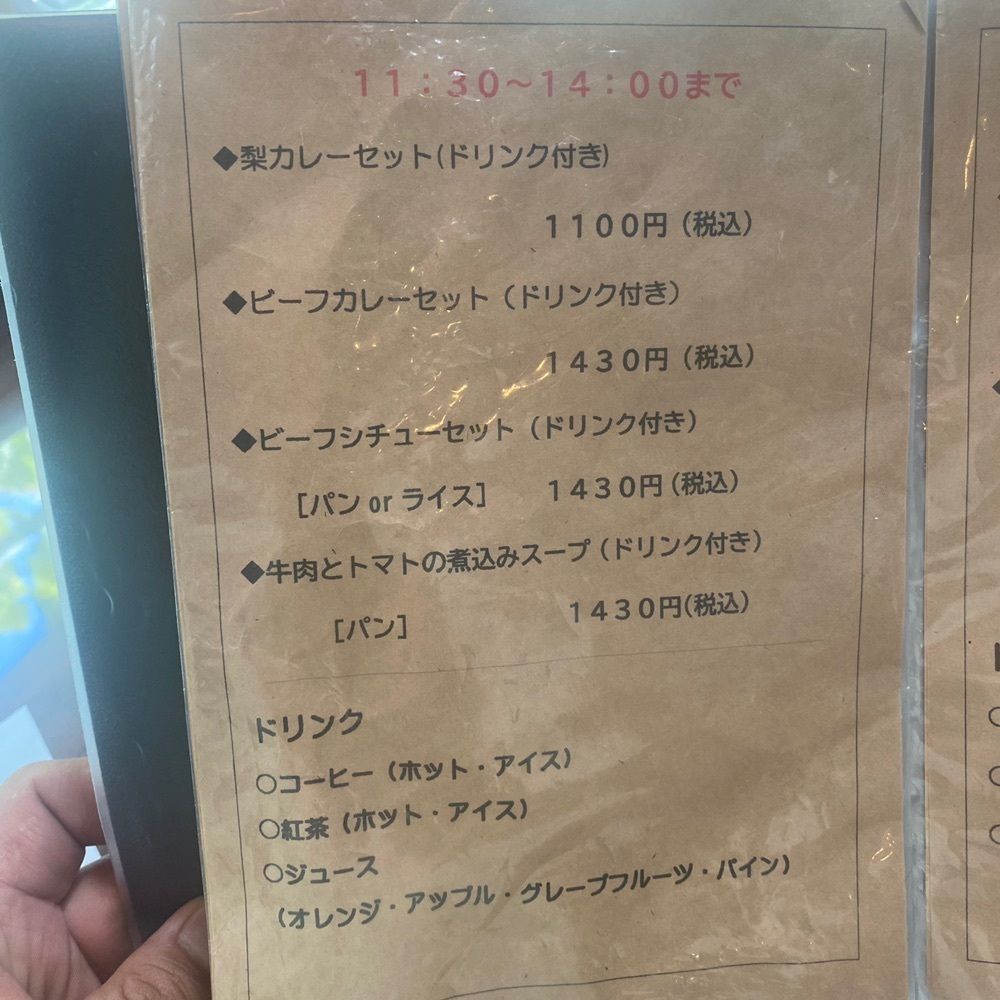 11：30～14：00まで
◆梨カレーセット(ドリンク付き)
1100円（税込）
◆ビーフカレーセット（ドリンク付き）
1430円（税込）
◆ビーフシチューセット（ドリンク付き）
［パン or ライス］ 1430円（税込）
◆牛肉とトマトの煮込みスープ（ドリンク付き）
［パン］ 1430円(税込)
ドリンク
○コーヒー（ホット・アイス）
○紅茶（ホット・アイス）
○ジュース
（オレンジ・アップル・グレープフルーツ・パイン）